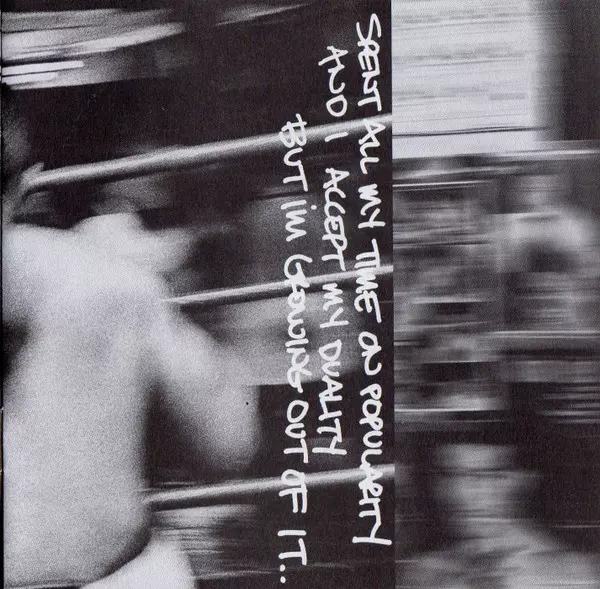 SPENT ALL MY TIME ON POPULARITY
AND I ACCEPT MY DUALITY
BUT i'M GROWING OUT OF IT..